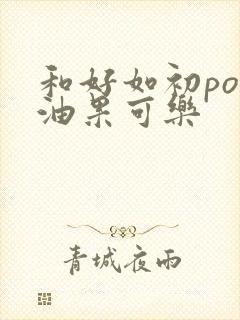 和好如初po
油果可樂
青城夜雨